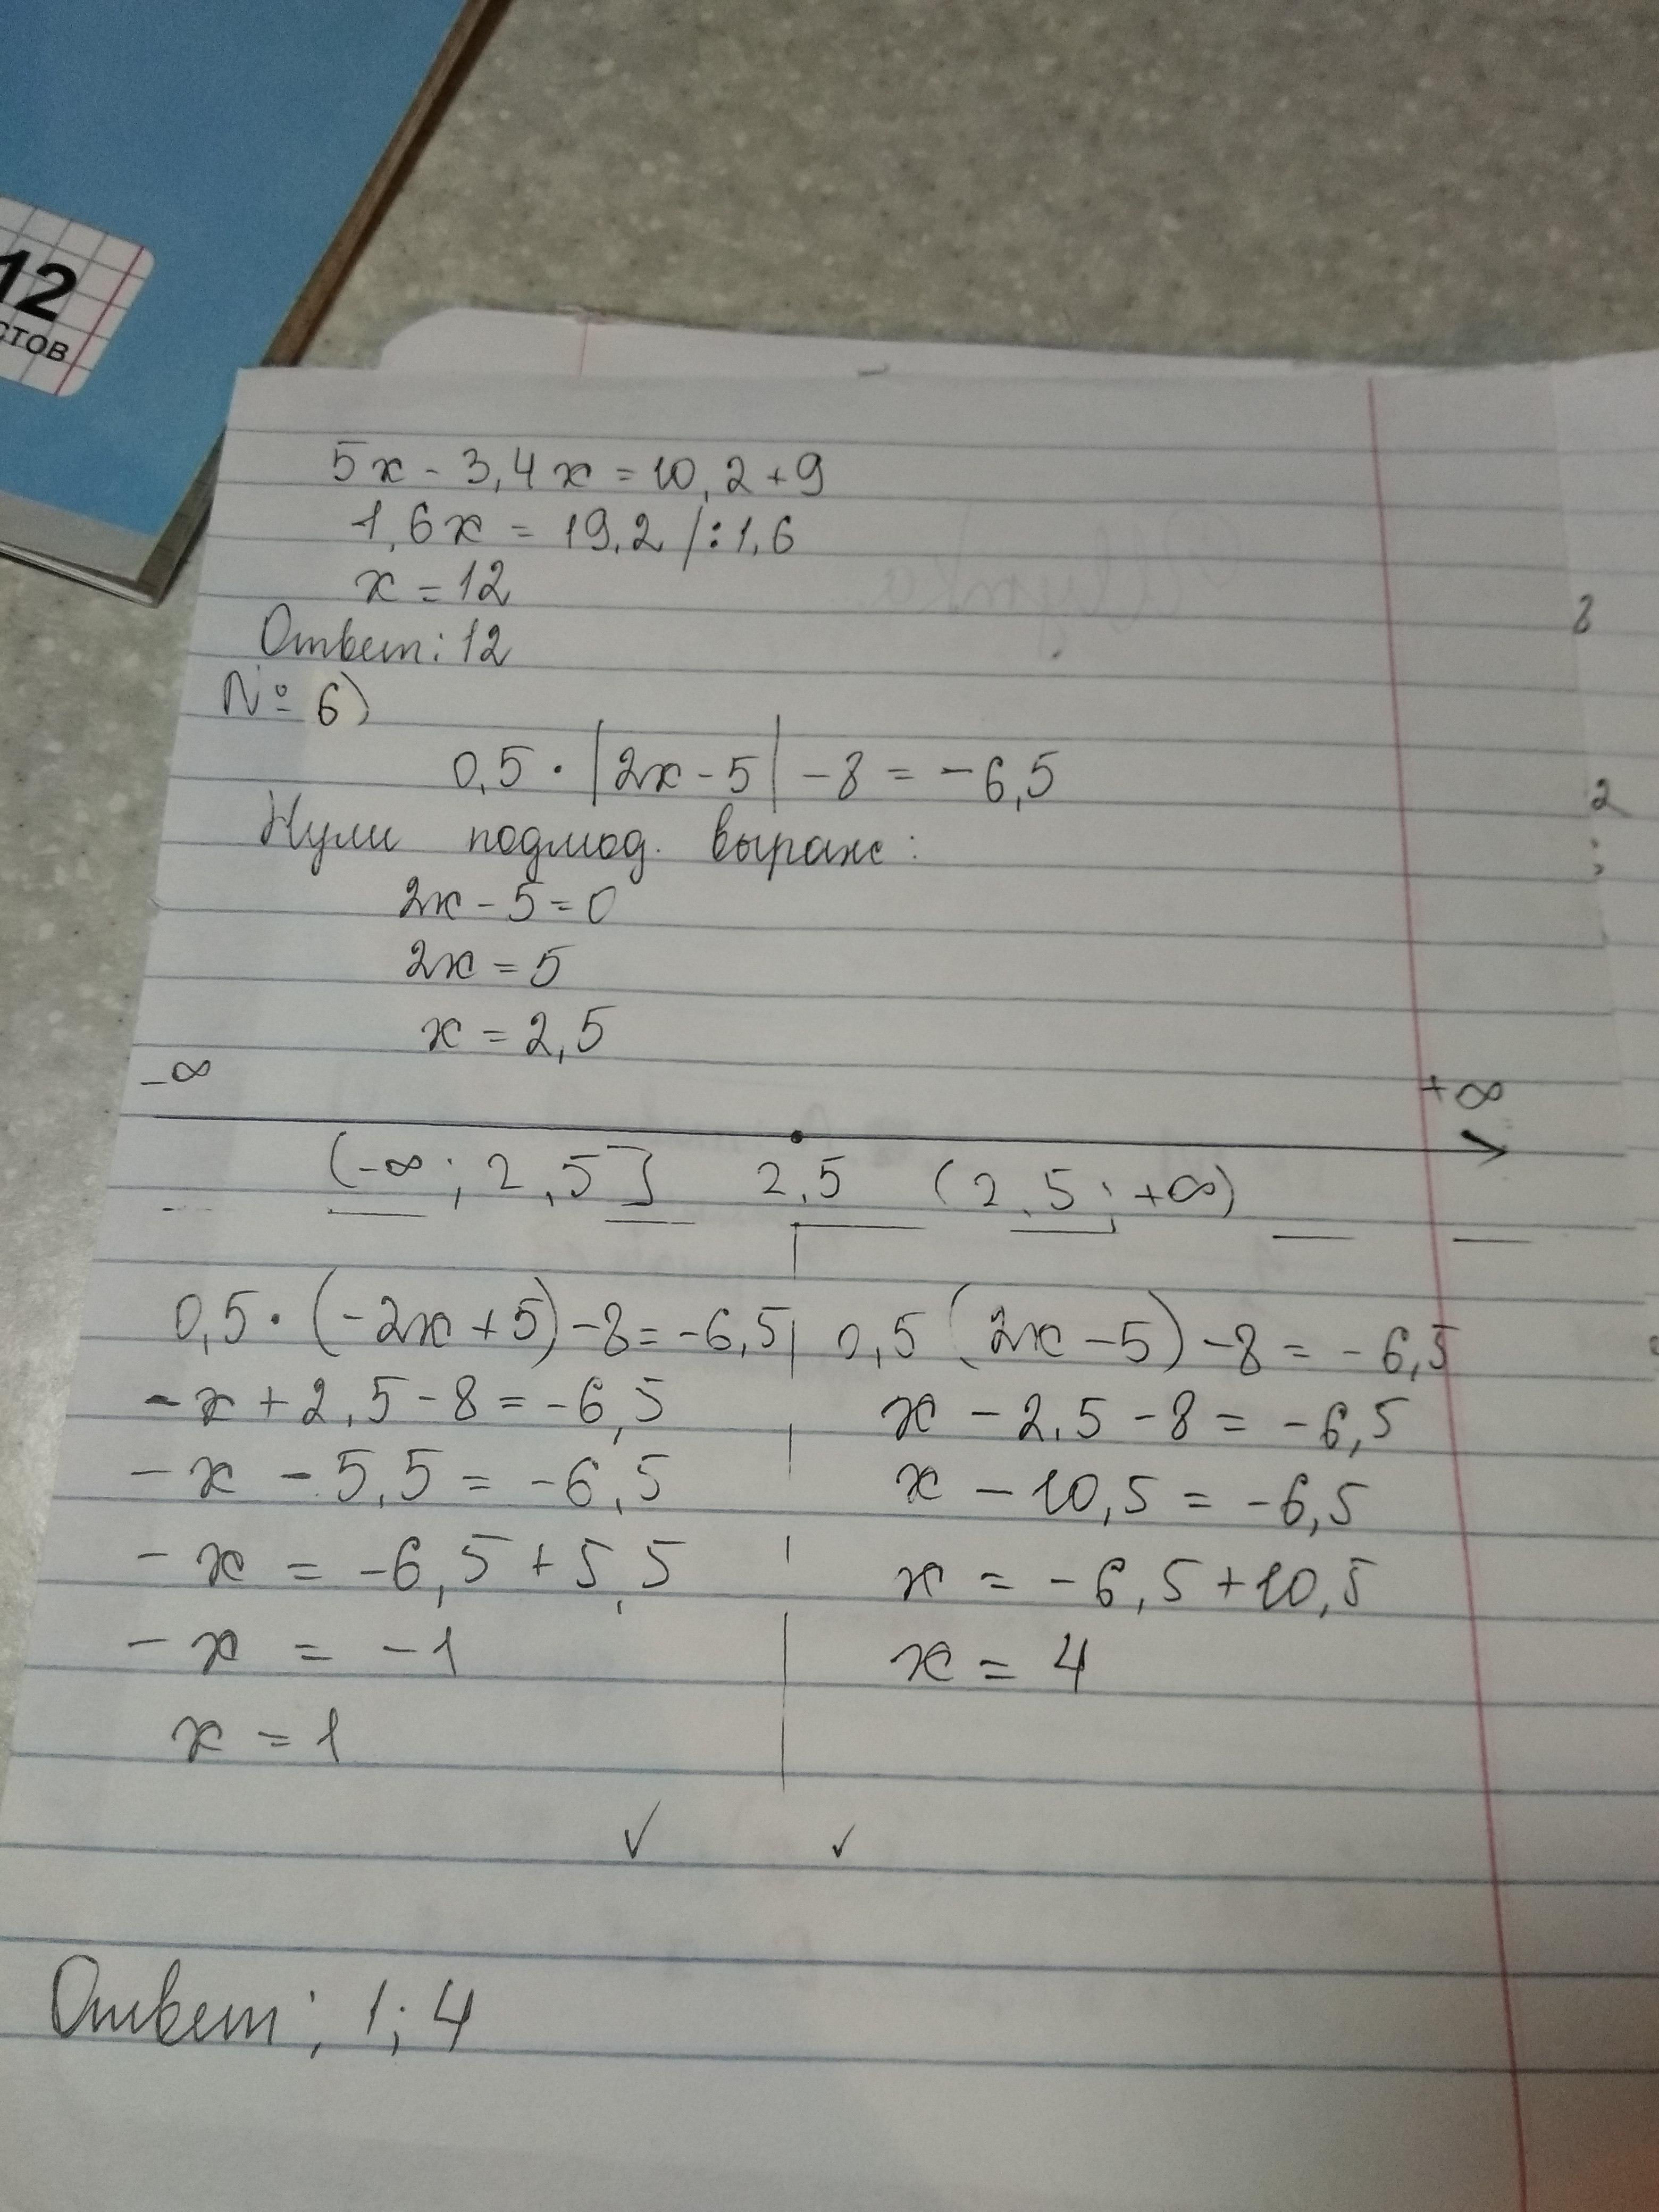 12
СТОВ
5x - 3,4x = 10,2 + 9
1,6x = 19,2 /:1,6
x = 12
Ответ: 12
№ 6)
0,5 · |2x - 5| - 8 = -6,5
Нули подмод. выраж:
2x - 5 = 0
2x = 5
x = 2,5
-∞ +∞
(-∞; 2,5] 2,5 (2,5; +∞)
0,5 · (-2x + 5) - 8 = -6,5 | 0,5 (2x - 5) - 8 = -6,5
-x + 2,5 - 8 = -6,5 x - 2,5 - 8 = -6,5
-x - 5,5 = -6,5 x - 10,5 = -6,5
-x = -6,5 + 5,5 x = -6,5 + 10,5
-x = -1 x = 4
x = 1
✓ ✓
Ответ; 1; 4
2